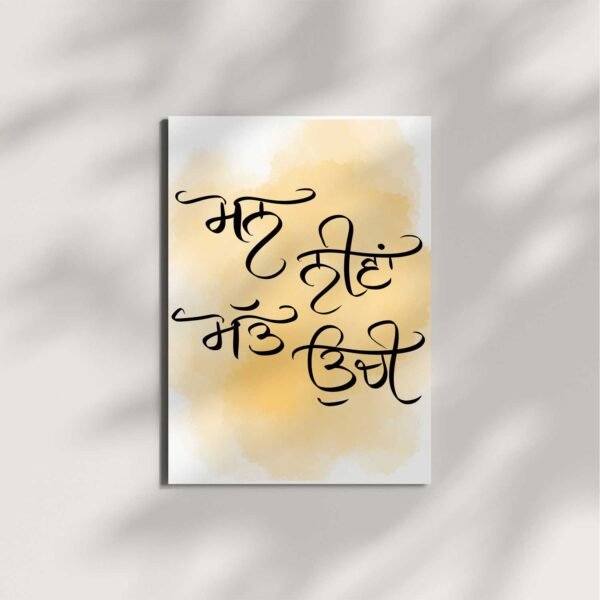 ਮਨ
ਨੀਵਾਂ
ਮੱਤ
ਉਚੀ